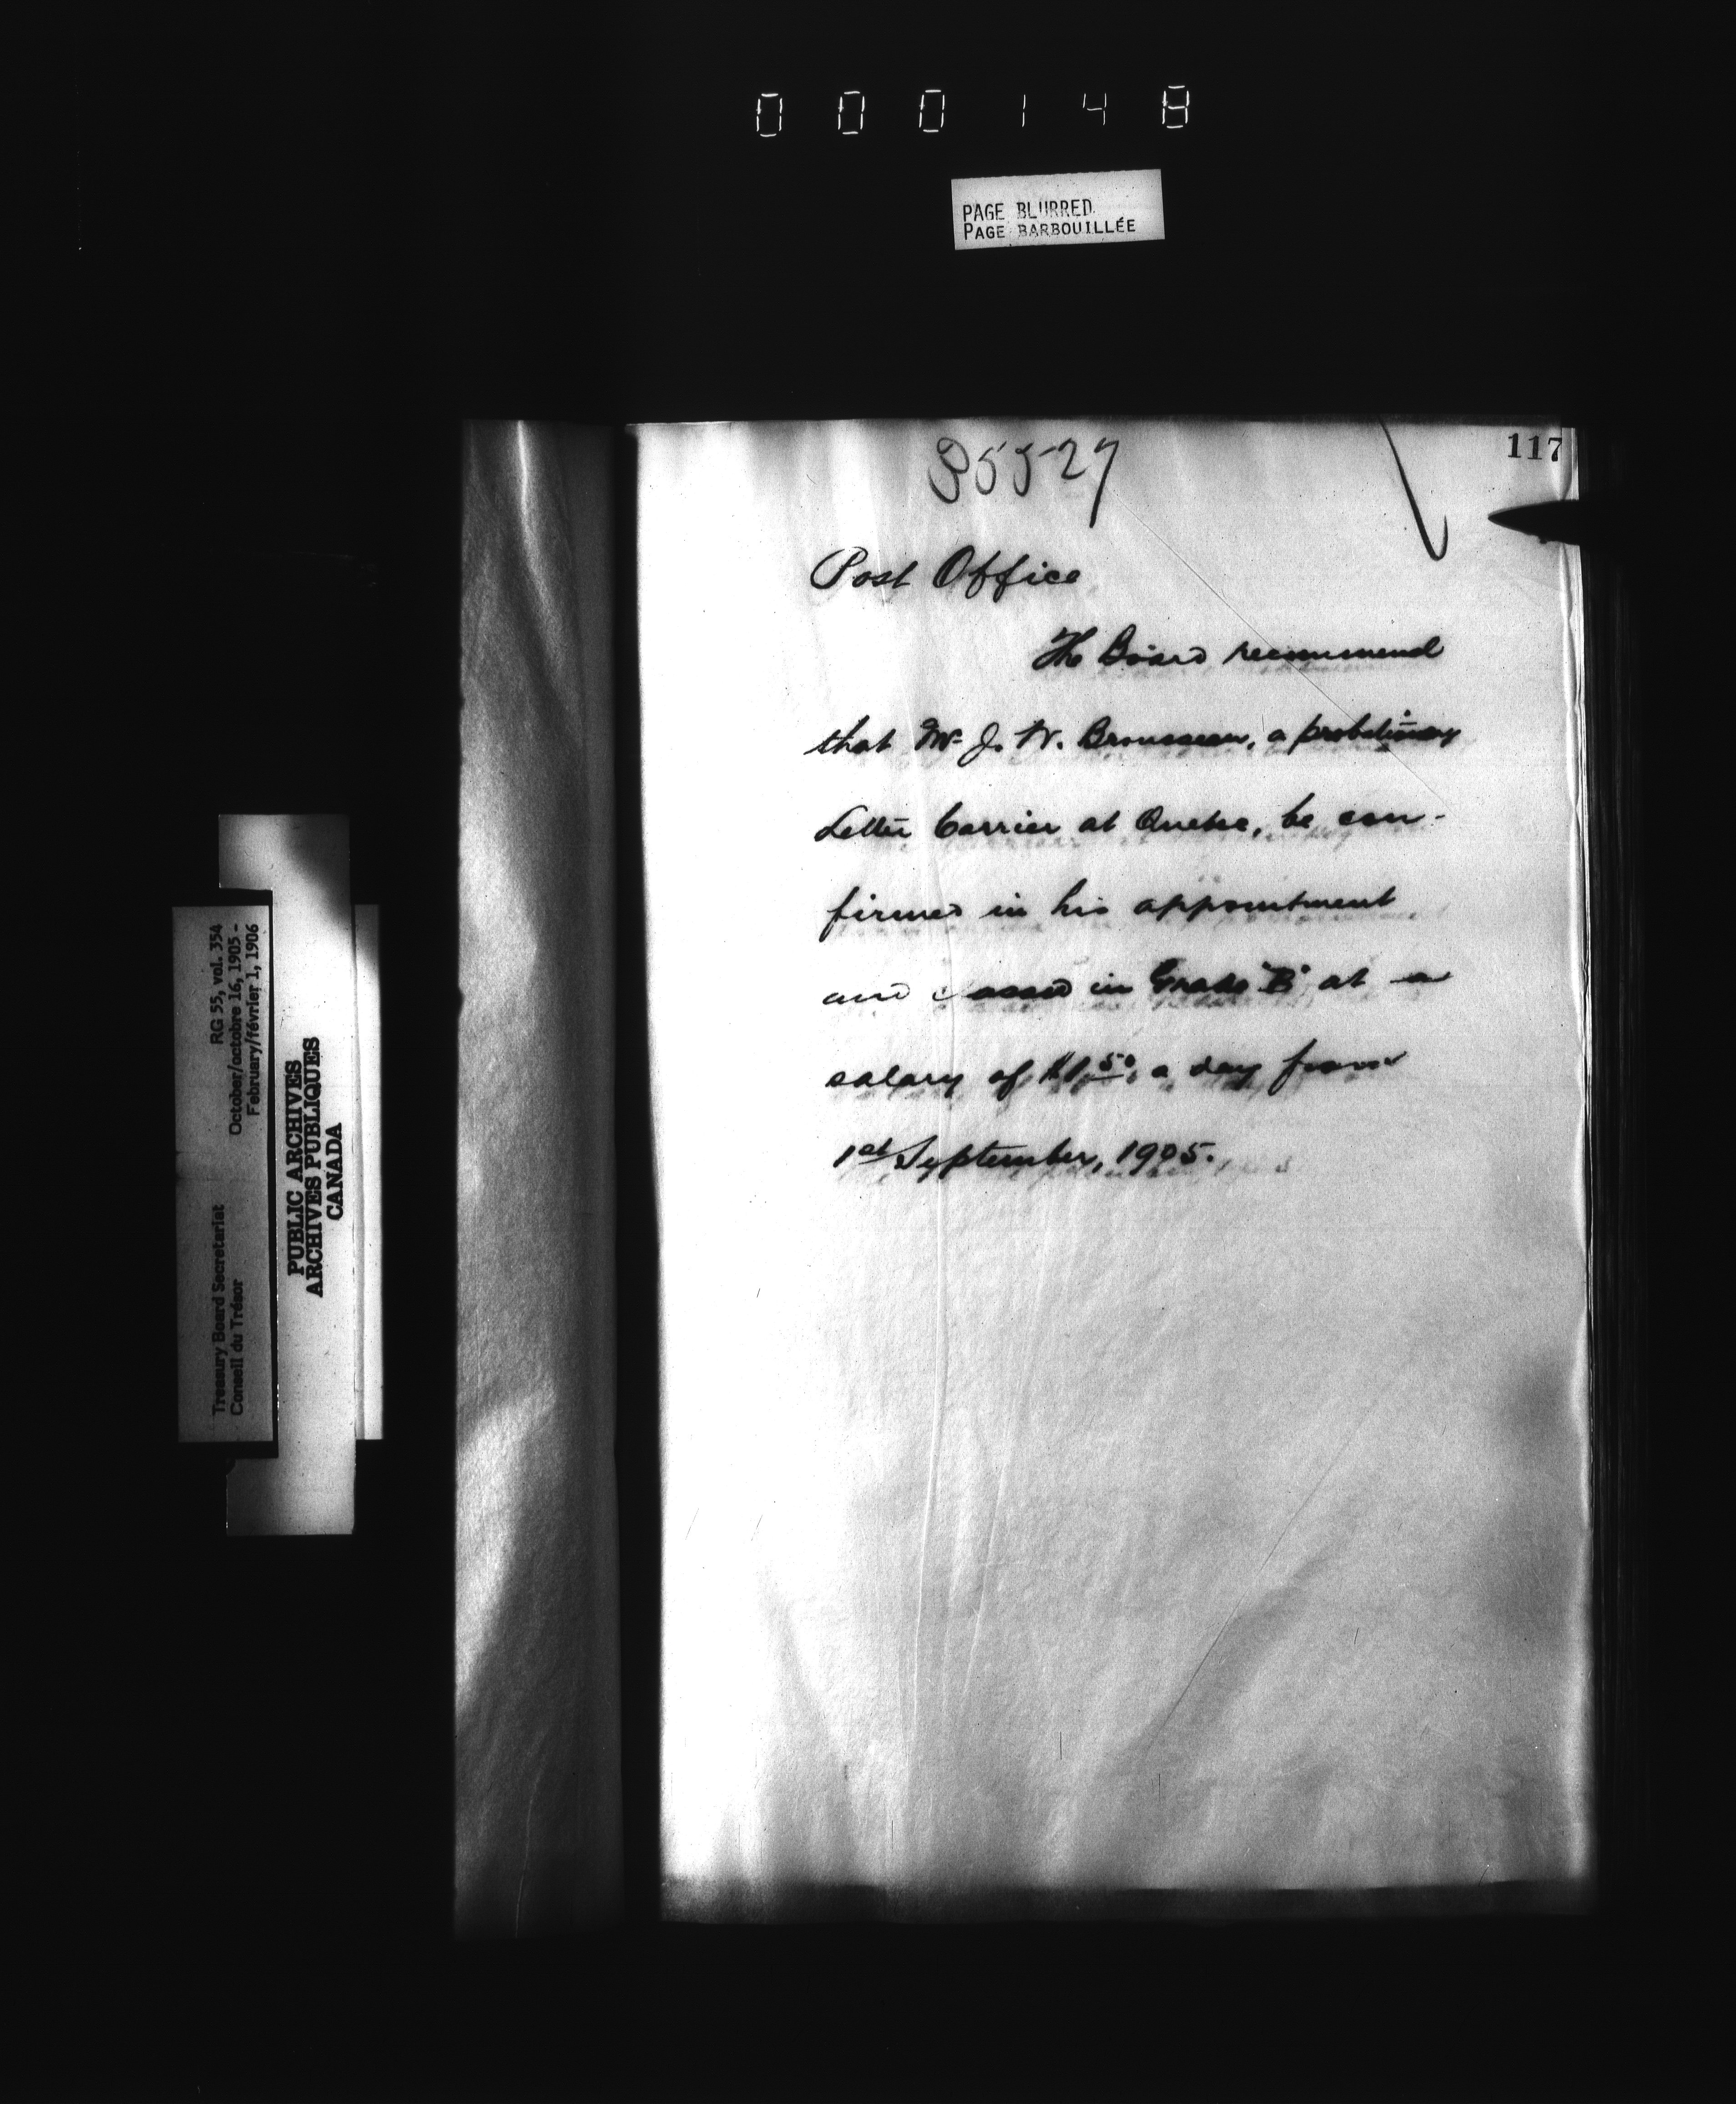 000148
PAGE BLURRED
PAGE BARBOUILLÉE
117
85527
Post Office
The Board recommend
that Mr. J. W. Brousseau, a probationary
Letter Carrier at Quebec, be con-
firmed in his appointment
and classed in Grade "B" at a
salary of $1.50 a day from
1st September, 1905.
Treasury Board Secretariat RG 55, vol. 354
Conseil du Trésor October/octobre 16, 1905 -
February/février 1, 1906
PUBLIC ARCHIVES
ARCHIVES PUBLIQUES
CANADA